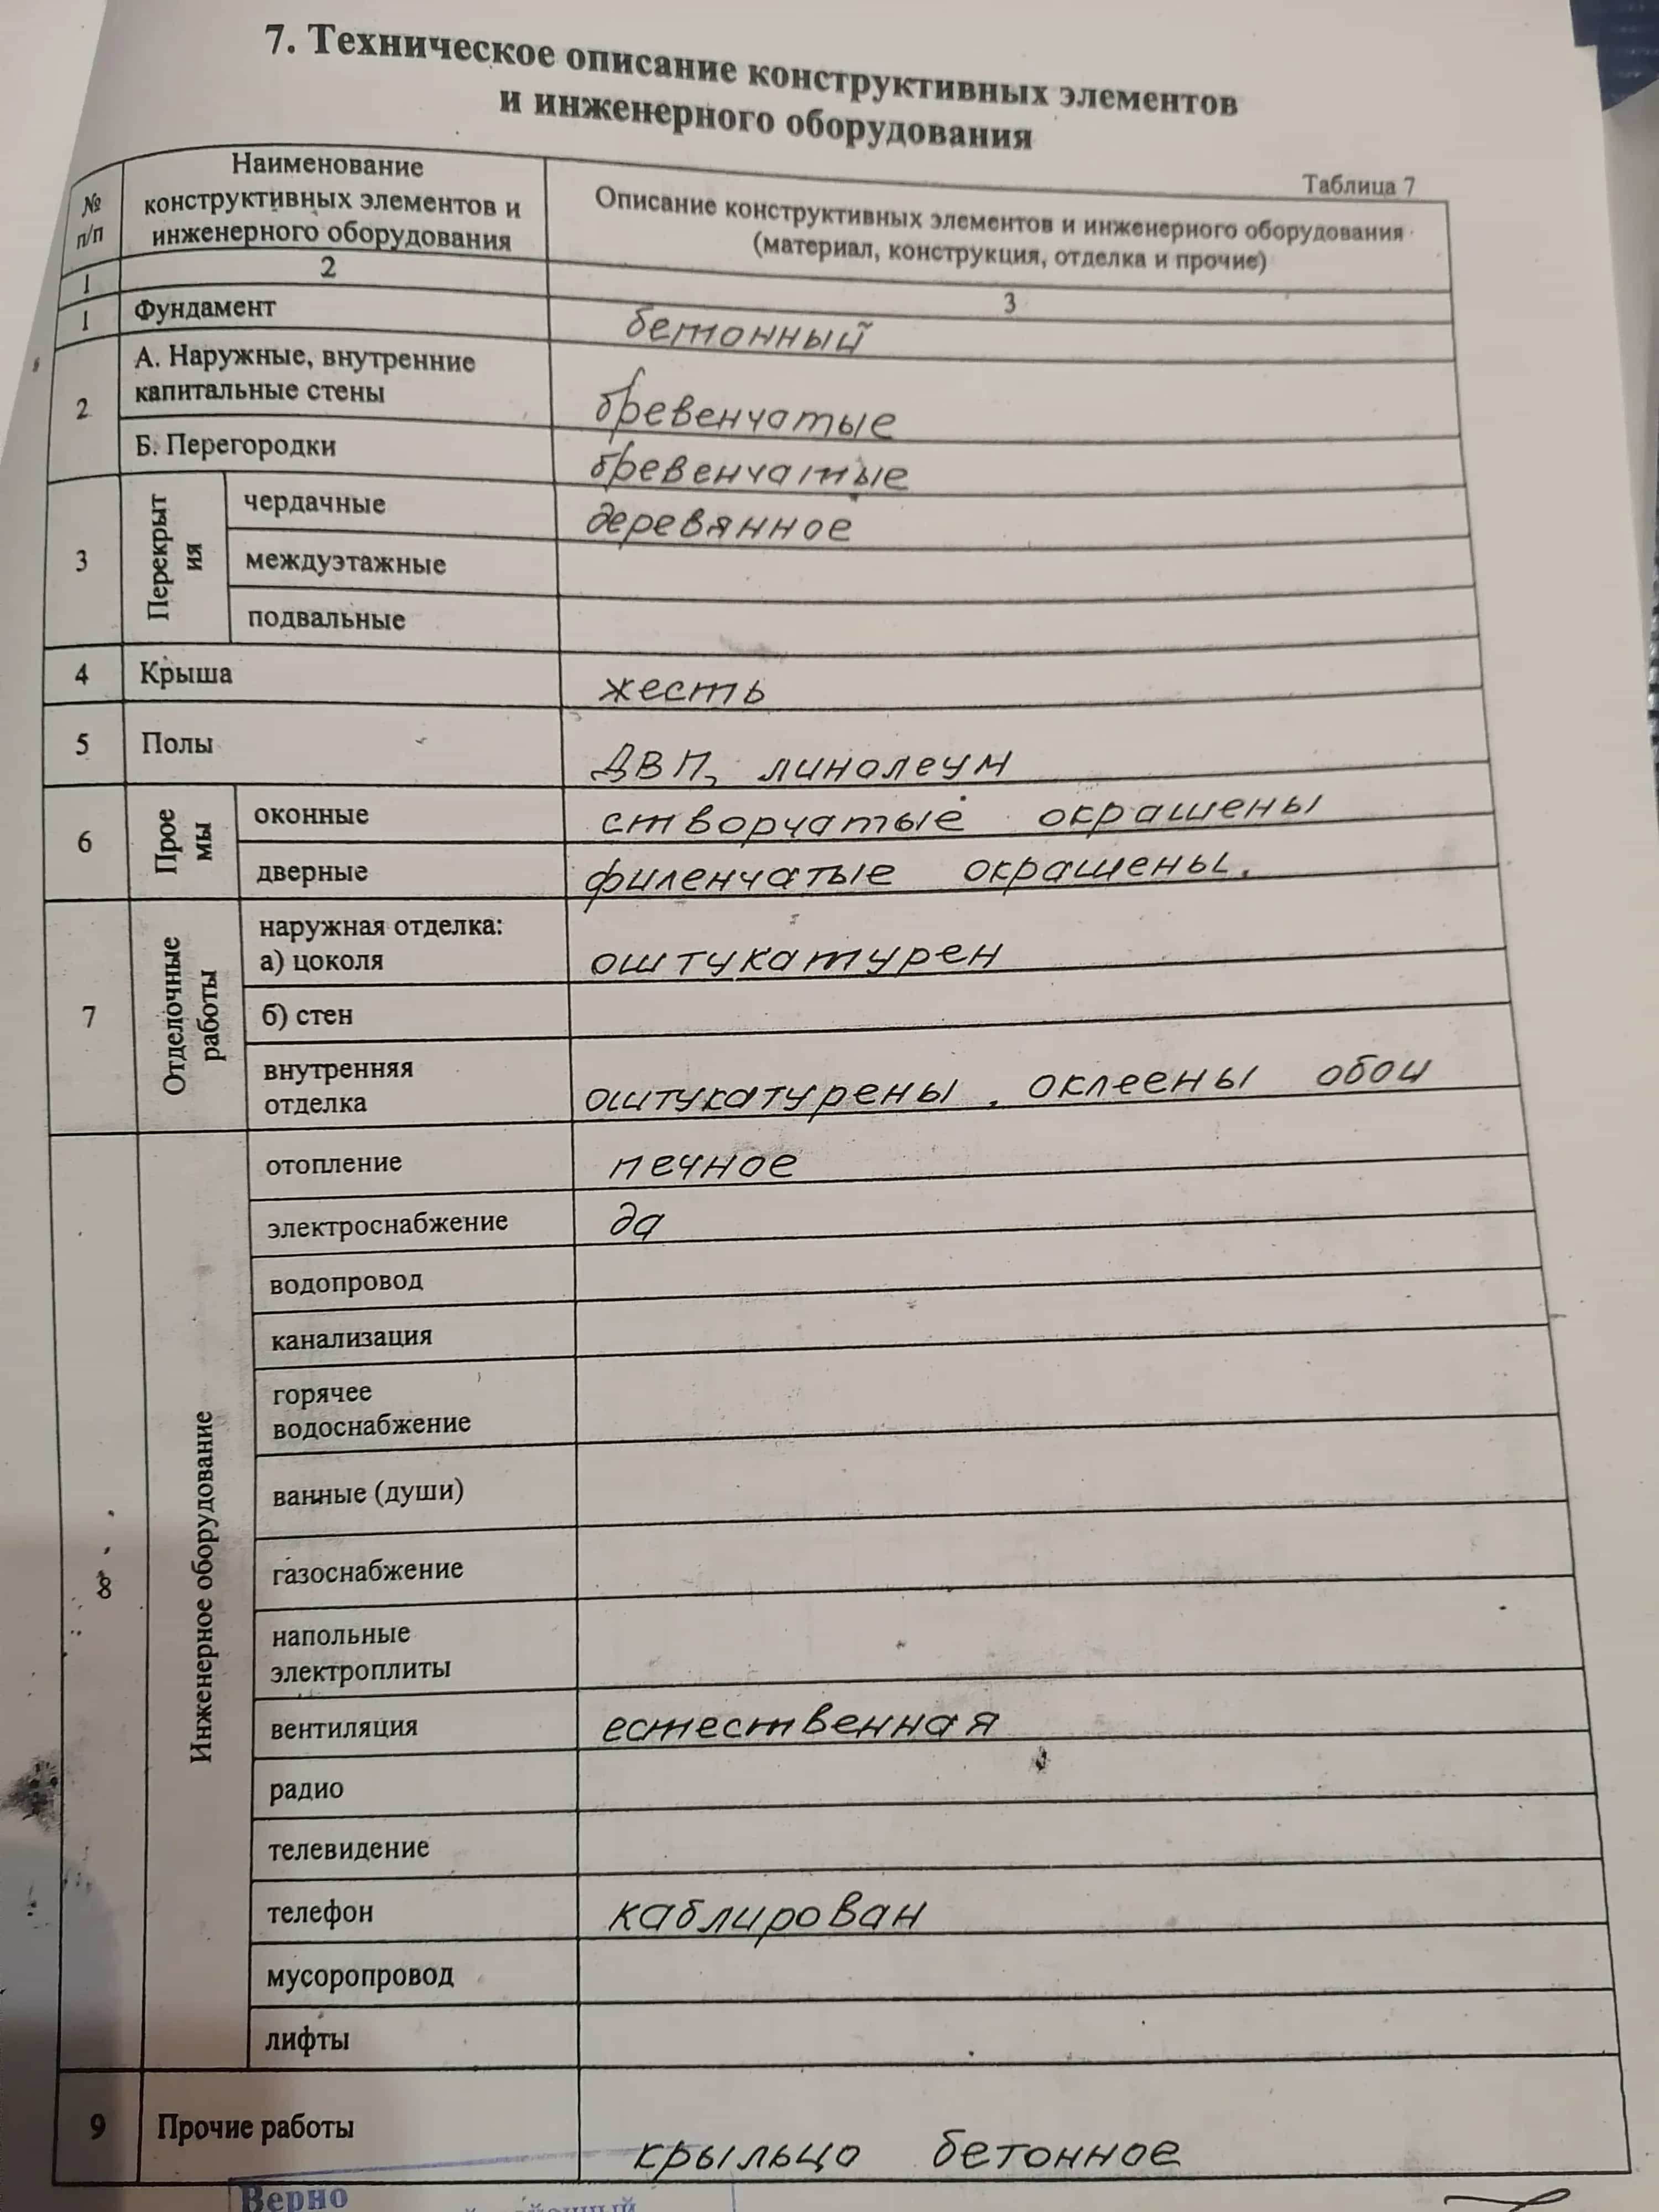 7. Техническое описание конструктивных элементов
и инженерного оборудования
Таблица 7
№
п/п
Наименование
конструктивных элементов и
инженерного оборудования
Описание конструктивных элементов и инженерного оборудования
(материал, конструкция, отделка и прочие)
1
2
3
1
Фундамент
бетонный
2
А. Наружные, внутренние
капитальные стены
бревенчатые
Б. Перегородки
бревенчатые
3
Перекрыт
ия
чердачные
деревянное
междуэтажные
подвальные
4
Крыша
жесть
5
Полы
ДВП, линолеум
6
Прое
мы
оконные
створчатые окрашены
дверные
филенчатые окрашены.
7
Отделочные
работы
наружная отделка:
а) цоколя
оштукатурен
б) стен
внутренняя
отделка
оштукатурены, оклеены обои
8
Инженерное оборудование
отопление
печное
электроснабжение
да
водопровод
канализация
горячее
водоснабжение
ванные (души)
газоснабжение
напольные
электроплиты
вентиляция
естественная
радио
телевидение
телефон
каблирован
мусоропровод
лифты
9
Прочие работы
крыльцо бетонное
Верно